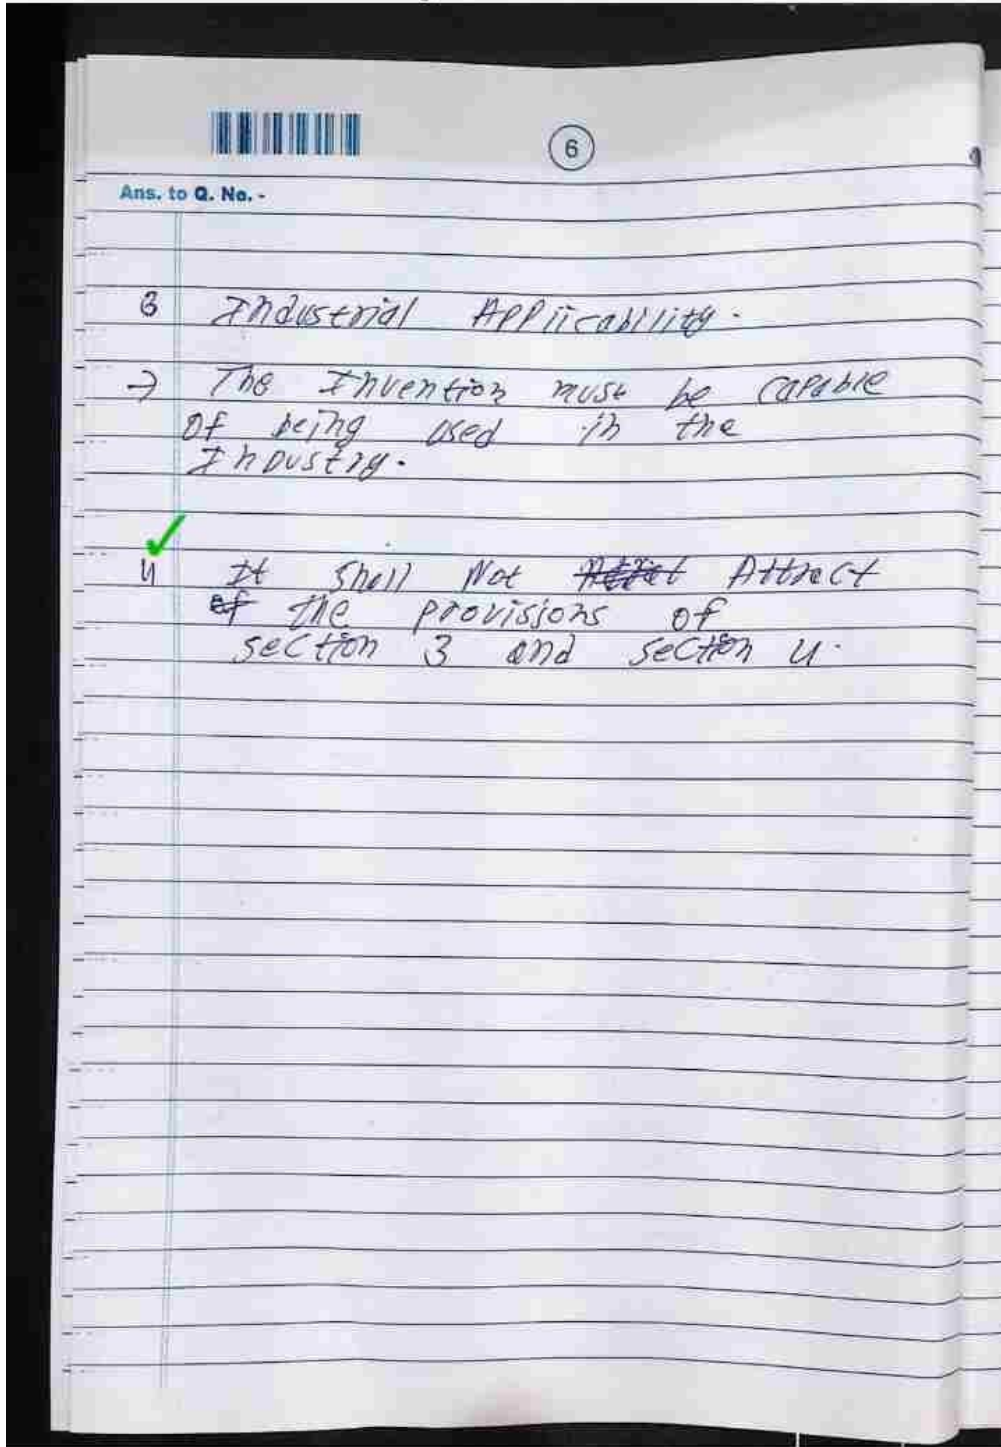 6
Ans. to Q. No. -
3 Industrial Applicability.
→ The Invention must be capable
of being used in the
Industry.
4 It shall Not Attract
the provisions of
section 3 and section 4.